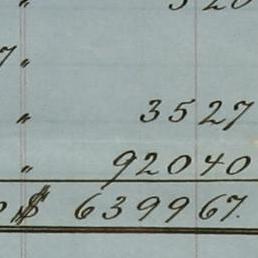 7 "
" 3527
" 92040
$ 639967.